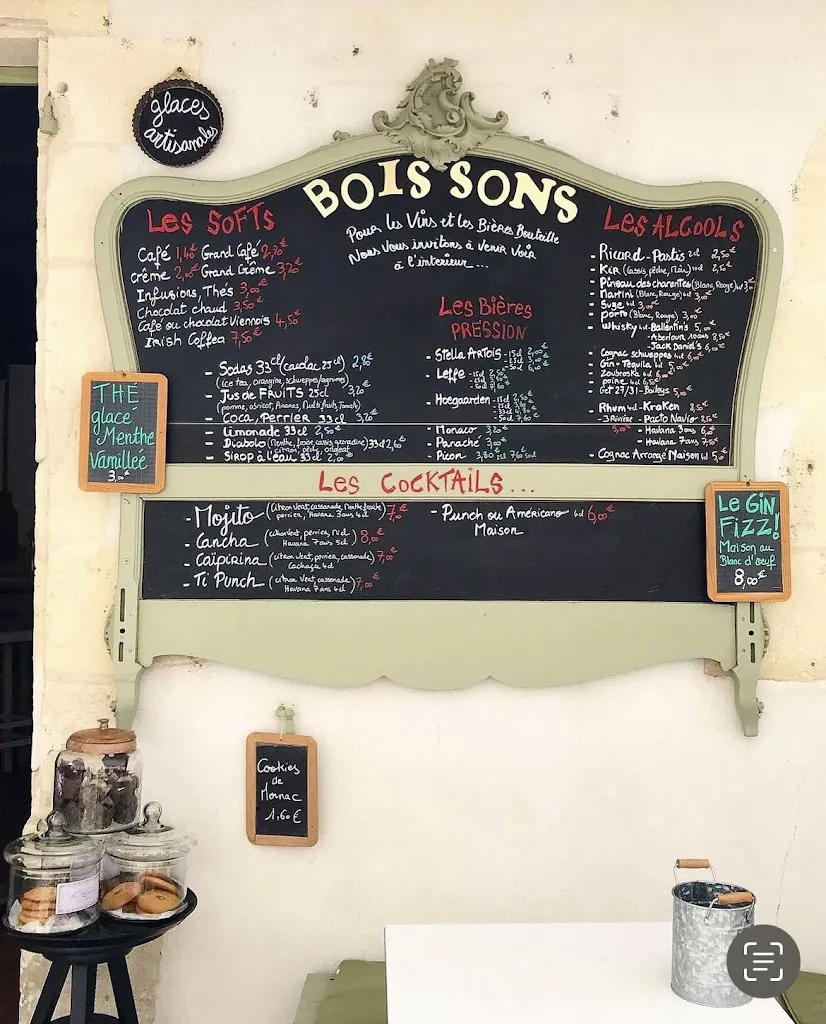 glaces
artisanales
BOISSONS
Pour les Vins et les Bières Bouteille
Nous Vous invitons à venir voir
à l'interieur...
Les SOFTS
Café 1,40€ Grand Café 2,70€
crème Grand Crème 3,20€
Infusions, Thés 3,00€
Chocolat chaud 3,50€
Café ou chocolat Viennois 4,50€
Irish Coffea 7,50€
- Sodas 33cl (cacolac 25cl) 2,80€
(ice tea, orangina, schweppes/agrumes)
- Jus de FRUITS 25cl 3,20€
(pomme, abricot, Ananas, Multifruits, Tomate)
- Coca, Perrier 33cl 3,20€
- Limonade 33cl 2,50€
- Diabolo (Menthe, fraise, cassis, grenadine) 33cl 2,60€
citron, pêche, orgeat
- SIROP à l'eau 33cl 2,00€
Les Bières
PRESSION
- Stella Artois - 15cl 2,00€
- Leffe - 15cl 2,50€
- Hoegaarden - 15cl 2,50€
- Monaco 3,20€
- Panaché 3,00€
- Picon 3,80 15cl 7,60 50cl
Les ALCOOLS
- Ricard - Pastis 2cl 2,50€
- Kir (cassis, pêche, Mûre) 10cl 2,50€
- Pineau des charentes (Blanc, Rouge) 6cl 3,00€
- Martini (Blanc, Rouge) 6cl 3,00€
- Suze 4cl 3,00€
- Porto (Blanc, Rouge) 3,00€
- Whisky 4cl - Ballentin's 5,00€
- Aberlour 10ans 8,50€
- Jack Daniel's 6,00€
- Cognac schweppes 4cl 6,00€
- Gin - Tequila 4cl 5,00€
- Zoubroska 4cl 6,00€
- poire 4cl 6,50€
- Get 27/31 - Baileys 5,00€
- Rhum 4cl - Kraken 8,50€
- 3 Rivière 5,00€ - Pacto Navio
- Havana 3 ans
- Havana 7 ans 7,50€
- Cognac Arrangé Maison 4cl 5,00€
THÉ
glacé
Menthe
Vanillée
3,00€
Les COCKTAILS...
- Mojito (citron Vert, cassonade, Menthe fraîche 7,00€
perrier, Havane 3ans 4cl)
- Cancha (citron Vert, perrier, miel 8,00€
Havana 7ans 5cl)
- Caïpirina (citron Vert, perrier, cassonade) 7,00€
Cachaça 4cl
- Ti Punch (citron Vert, cassonade) 7,00€
Havana 7ans 4cl
- Punch ou Américano 4cl 6,00€
Maison
Le GIN
FIZZ!
Maison au
Blanc d'œuf
8,00€
Cookies
de
Mornac
1,60€